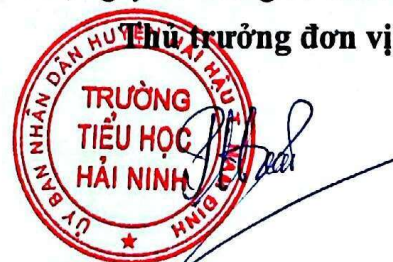 Thủ trưởng đơn vị
ỦY BAN NHÂN DÂN HUYỆN HẢI HẬU T. NAM ĐỊNH
TRƯỜNG
TIỂU HỌC
HẢI NINH